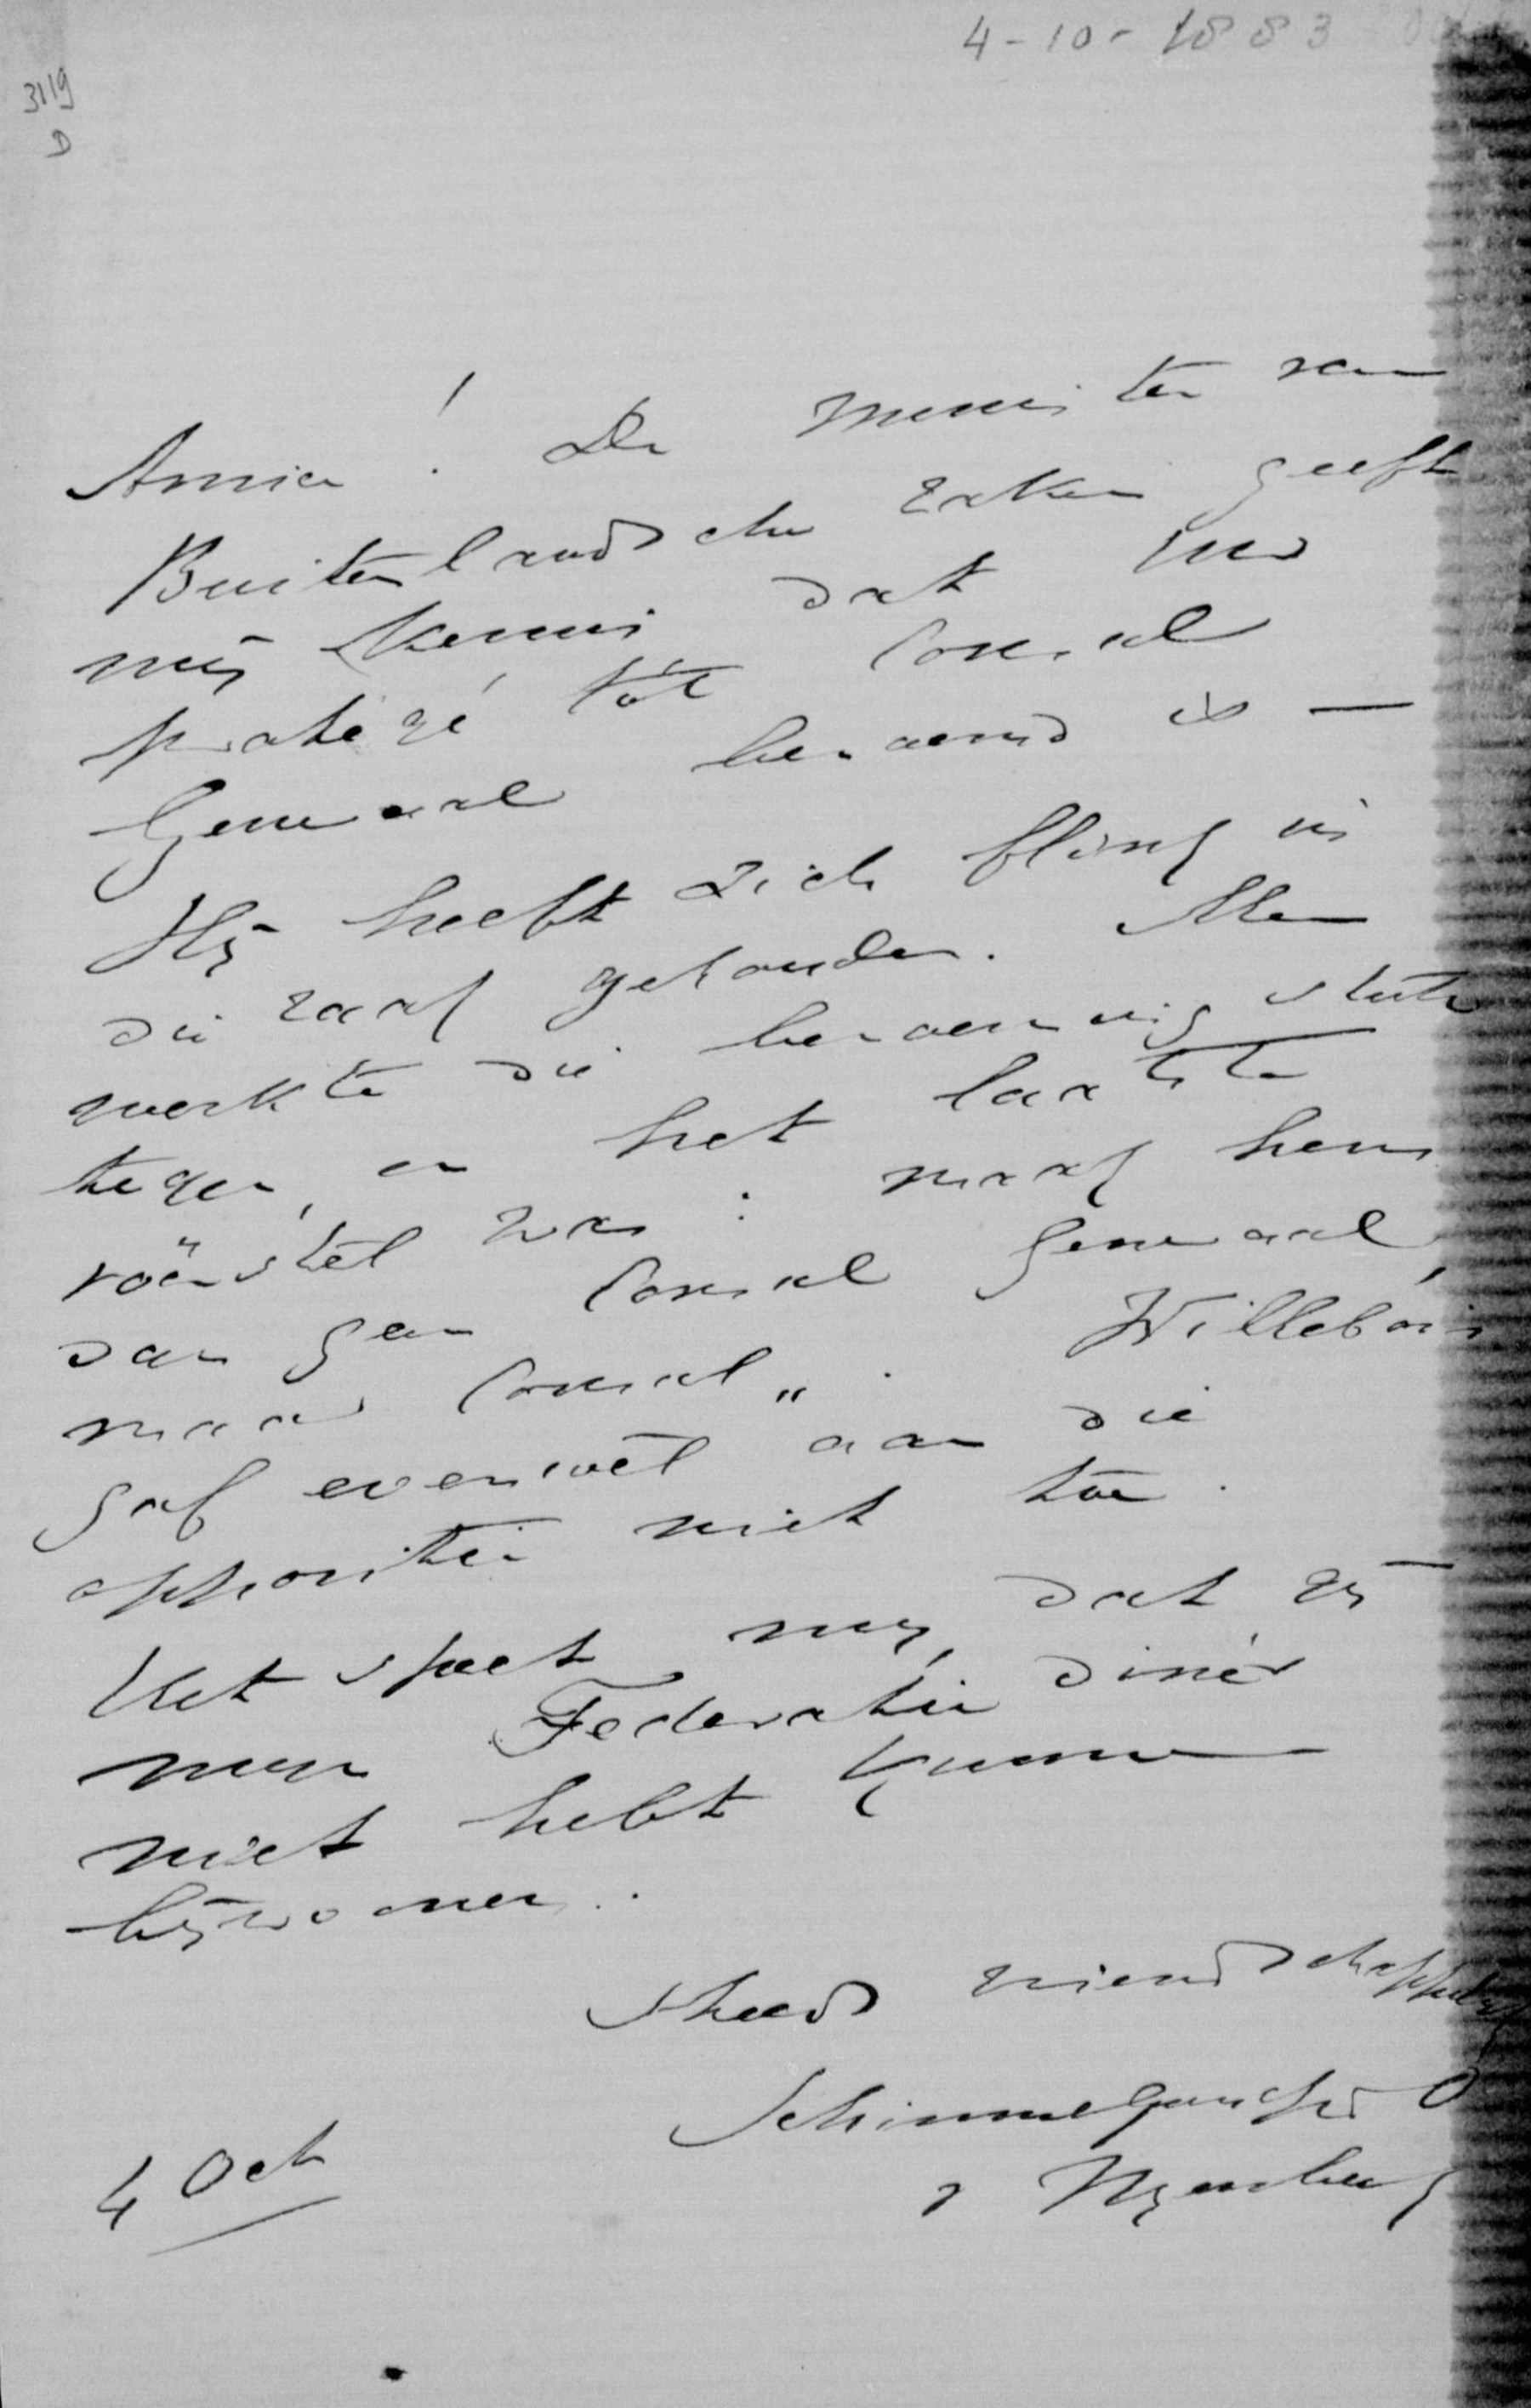 4-10-1883
3119
D
Amice! De minister van
Buitenlandsche zaken geeft
mij kennis dat uw
protégé tot Consul
Generaal benoemd is —
Hij heeft zich flink in
die zaak gehouden. Men
werkte die benoeming steeds
tegen, en het laatste
voorstel was: maak hem
dan geen Consul Generaal,
maar Consul". Willebois
gaf evenwel aan die
oppositie niet toe.
Het speet mij, dat gij
mijn Federatie diner
niet hebt kunnen
bijwonen.
Steeds vriendschappelijk
Schimmelpenninck
v Nyenbeek
4 Oct